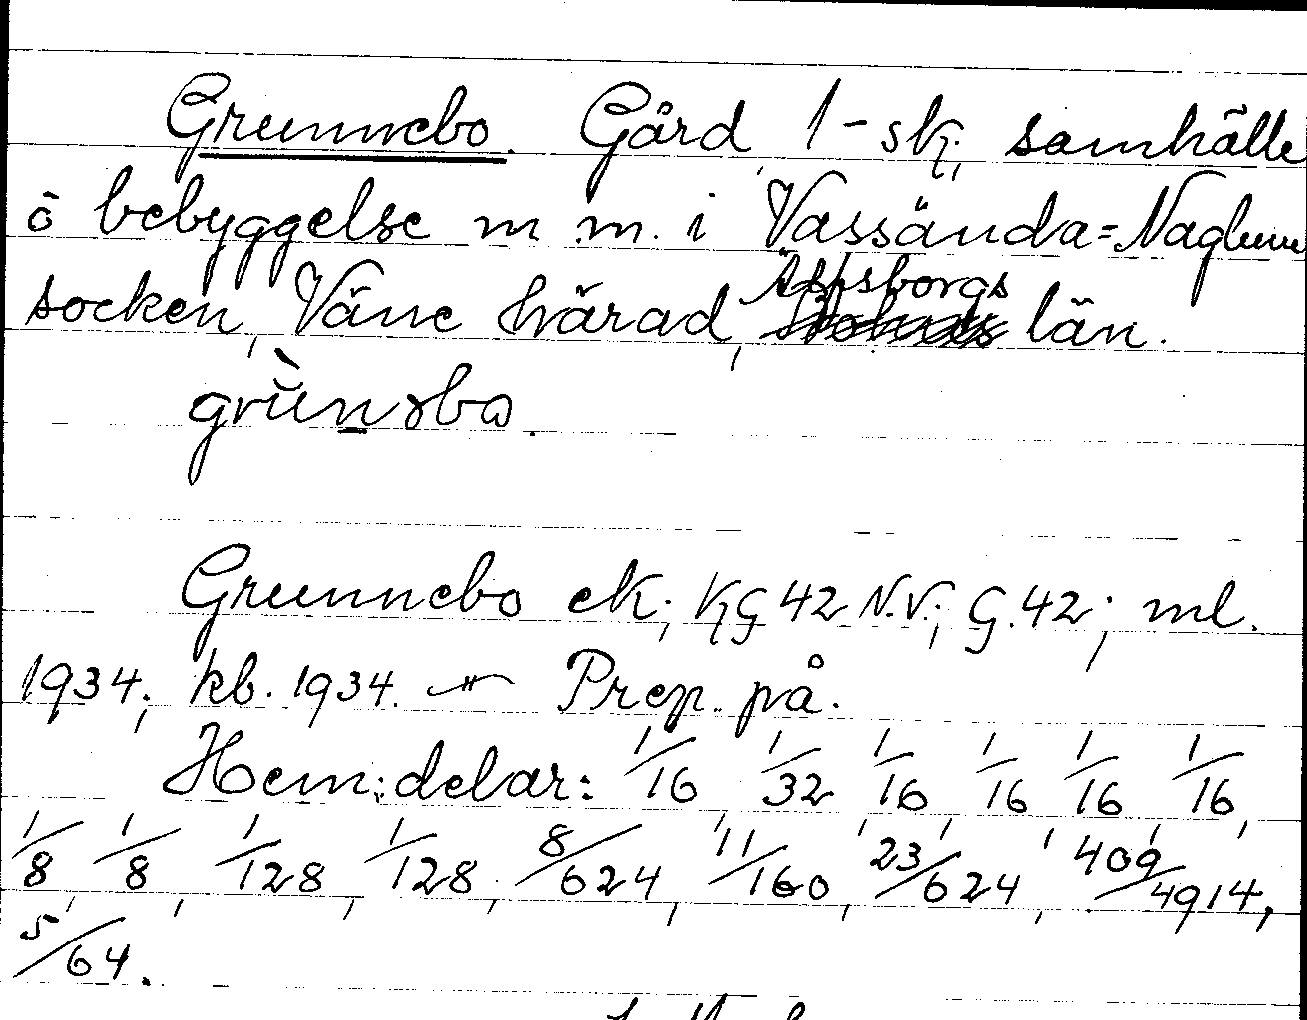 Grunnebo. Gård, 1-sk; samhälle
o bebyggelse m.m. i Vassända=Naglum
socken, Väne härad, Älfsborgs län.
grùn̲əbo.
Grunnebo ek; KG 42 N.V; G.42; ml.
1934; kb. 1934. — Prep. på.
Hem:delar: 1/16, 1/32, 1/16, 1/16, 1/16, 1/16,
1/8, 1/8, 1/128, 1/128, 8/624, 11/160, 23/624, 409/4914,
5/64.